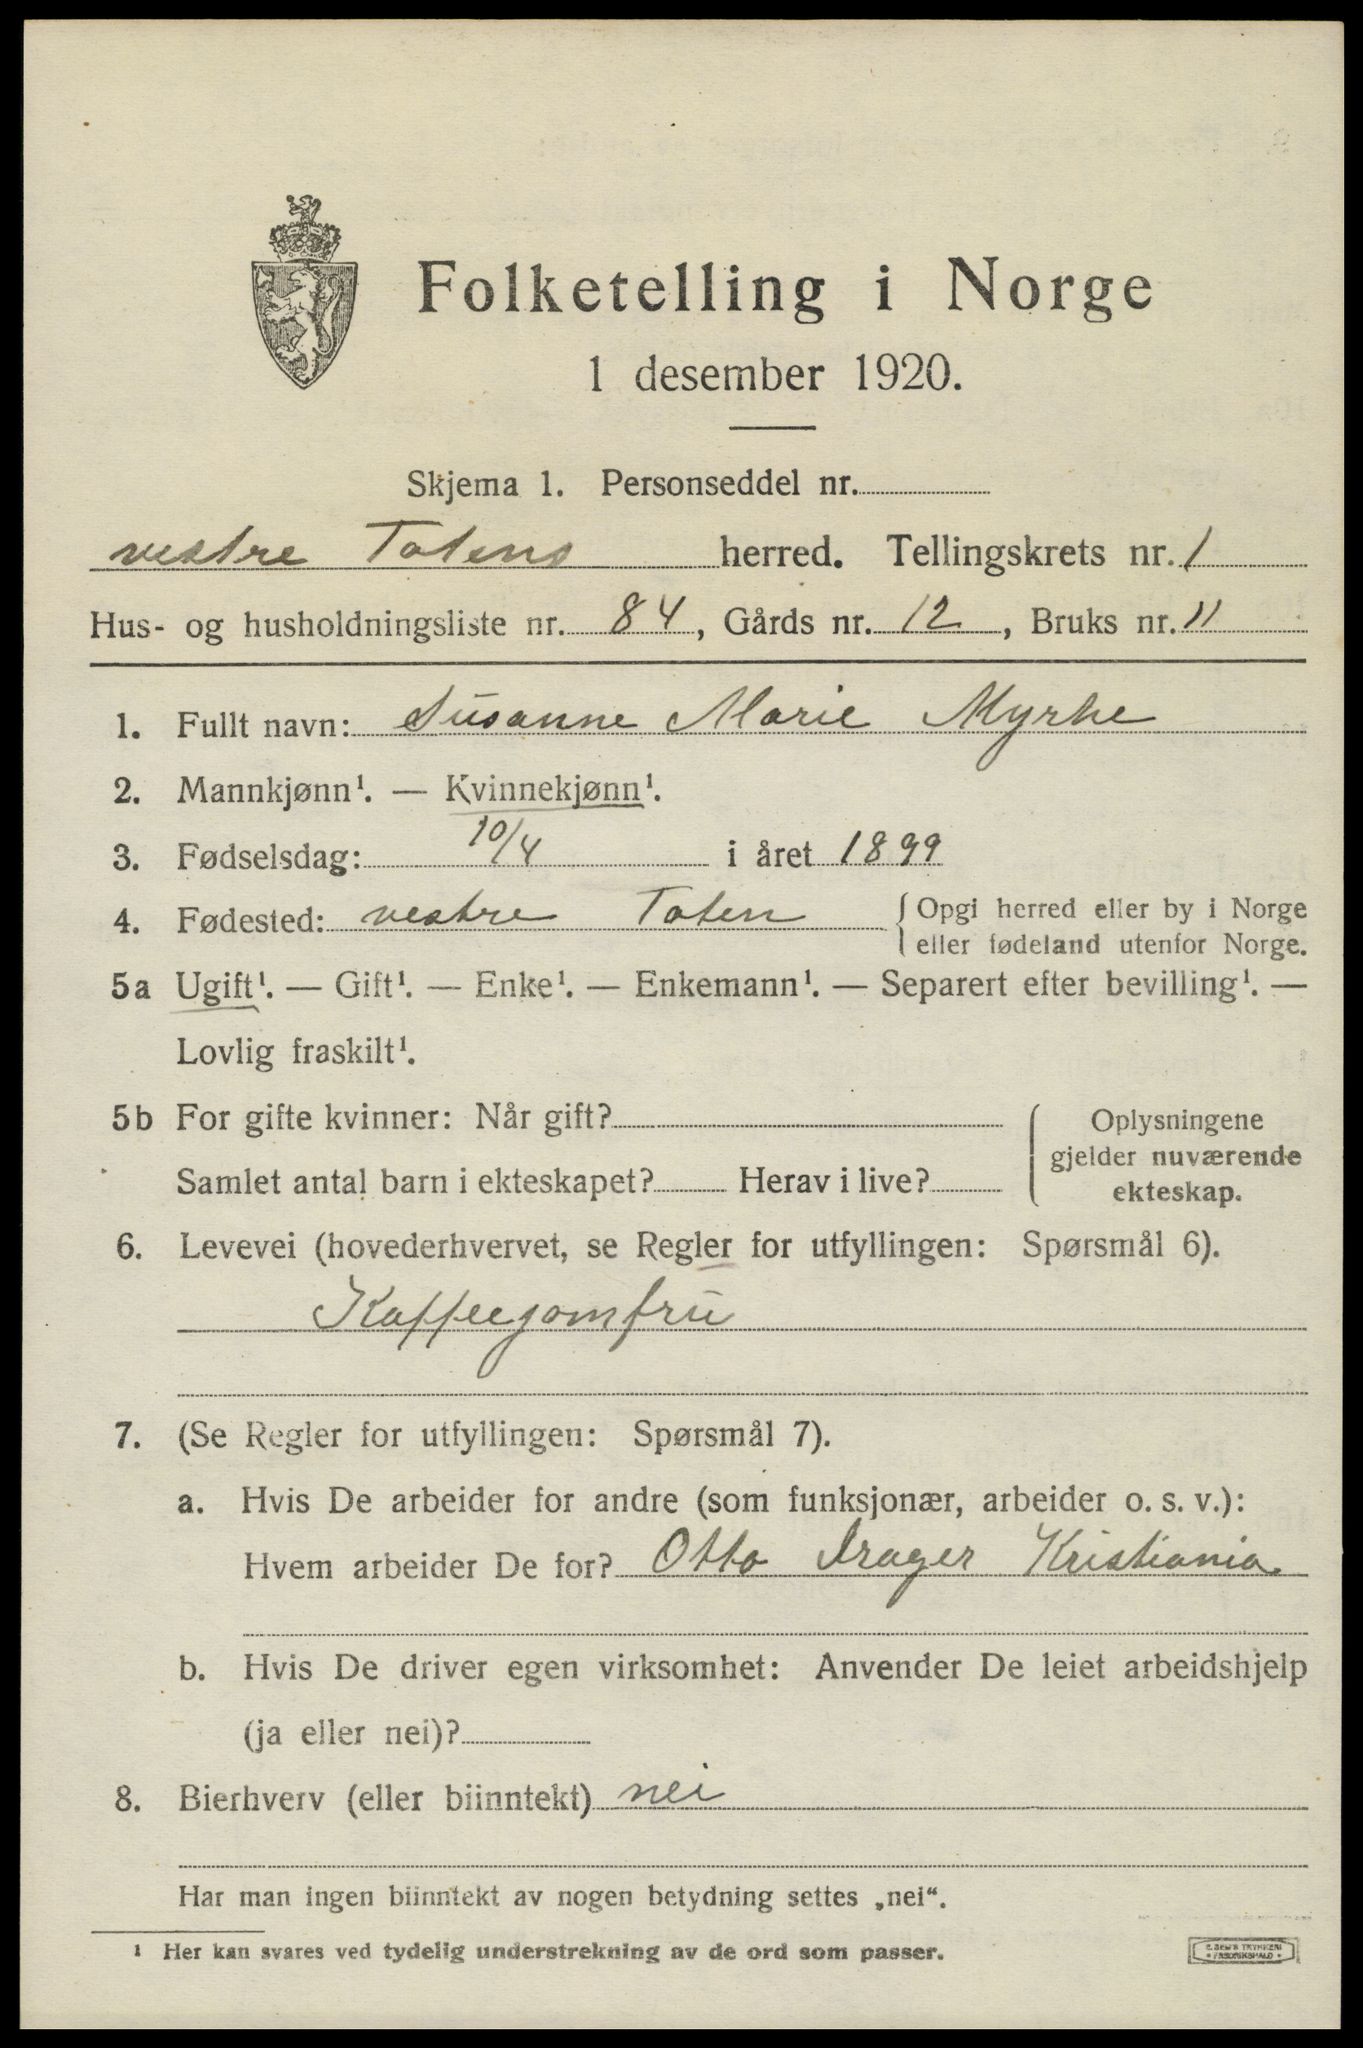 Folketelling i Norge
1 desember 1920.
Skjema 1. Personseddel nr.
vestre Totens herred. Tellingskrets nr. 1
Hus- og husholdningsliste nr. 84, Gårds nr. 12, Bruks nr. 11
1. Fullt navn: Susanne Marie Myrhe
2. Mannkjønn¹. — Kvinnekjønn¹.
3. Fødselsdag: 10/4 i året 1899
4. Fødested: vestre Toten { Opgi herred eller by i Norge
eller fødeland utenfor Norge.
5a Ugift¹. — Gift¹. — Enke¹. — Enkemann¹. — Separert efter bevilling¹. —
Lovlig fraskilt¹.
5b For gifte kvinner: Når gift?
Samlet antal barn i ekteskapet? Herav i live?
Oplysningene
gjelder nuværende
ekteskap.
6. Levevei (hovederhvervet, se Regler for utfyllingen: Spørsmål 6).
Kaffeejomfru
7. (Se Regler for utfyllingen: Spørsmål 7).
a. Hvis De arbeider for andre (som funksjonær, arbeider o. s. v.):
Hvem arbeider De for? Otto Drager Kristiania
b. Hvis De driver egen virksomhet: Anvender De leiet arbeidshjelp
(ja eller nei)?
8. Bierhverv (eller biinntekt) nei
Har man ingen biinntekt av nogen betydning settes „nei“.
¹ Her kan svares ved tydelig understrekning av de ord som passer.